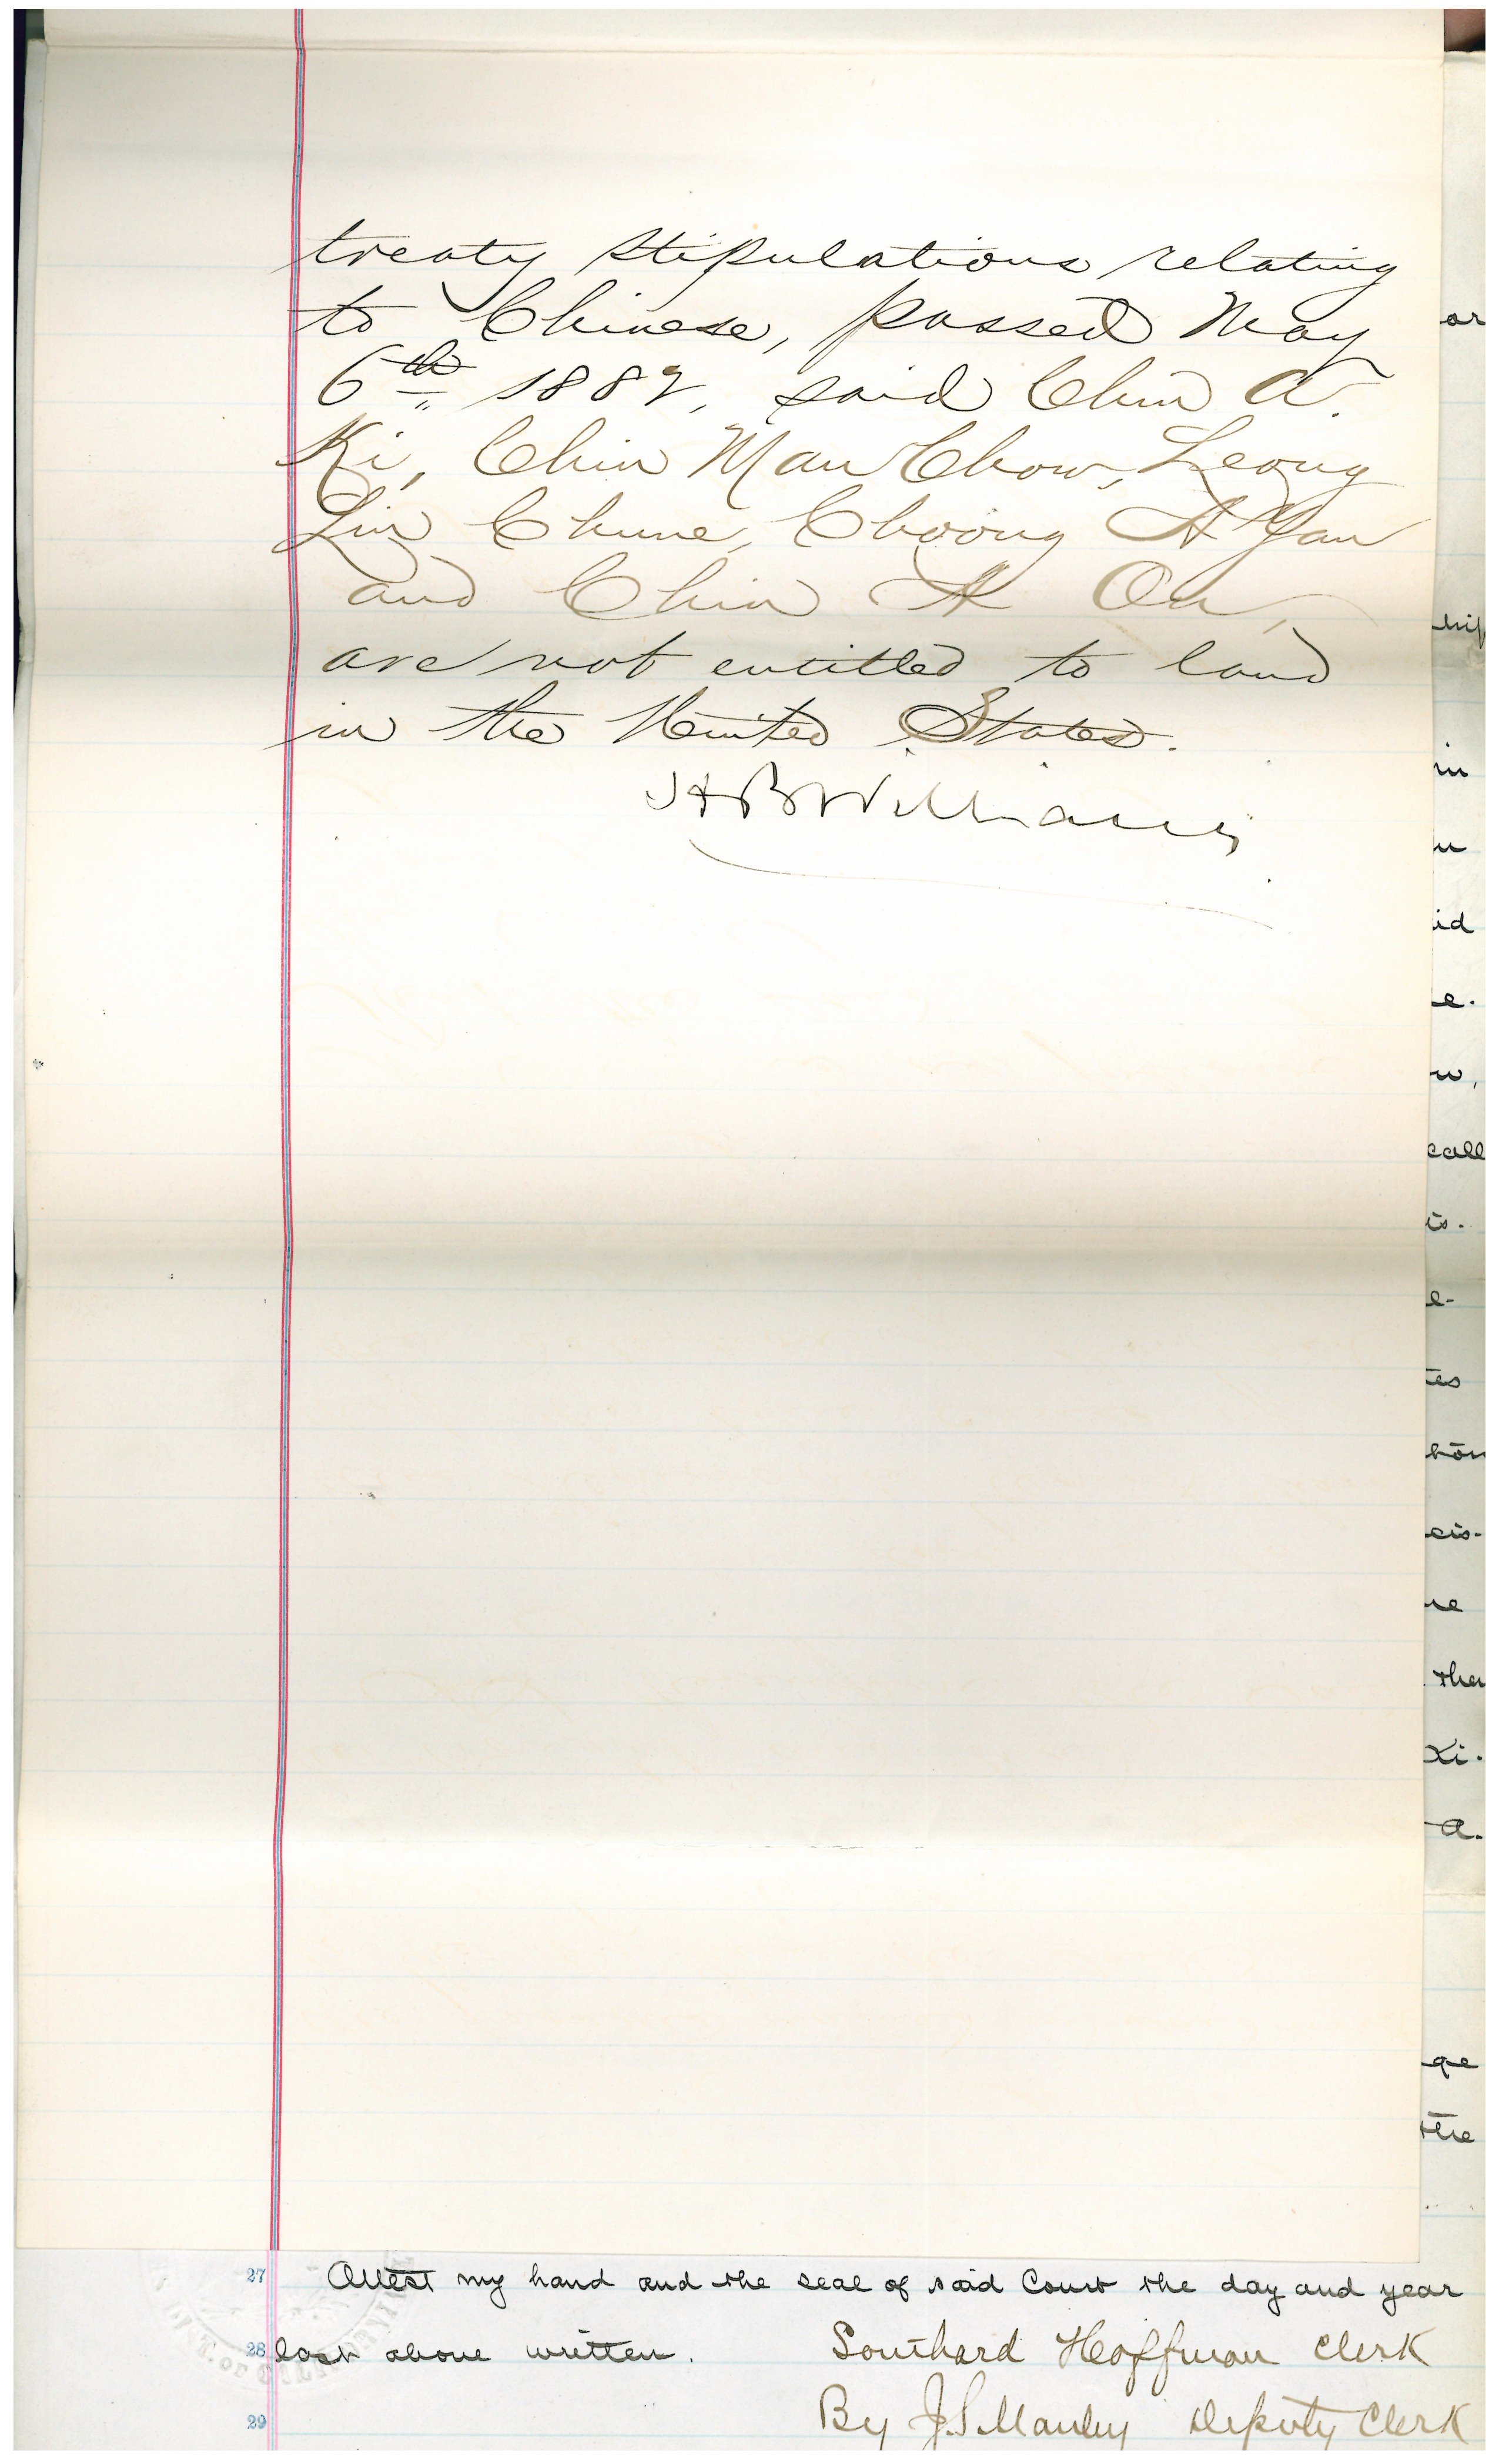 treaty stipulations relating
to Chinese, passed May
6th 1882, said Chin A.
Ki, Chin Man Chow, Leong
Lin Chune, Choong A Yan
and Chin A On,
are not entitled to land
in the United States.
H B Williams
or
in
u
id
e.
w,
call
is.
e-
tes
cis-
re
the
Ki.
A.
ge
the
27 Attest my hand and the seal of said Court the day and year
28 last above written. Southard Hoffman Clerk
29 By J. S. Manley Deputy Clerk